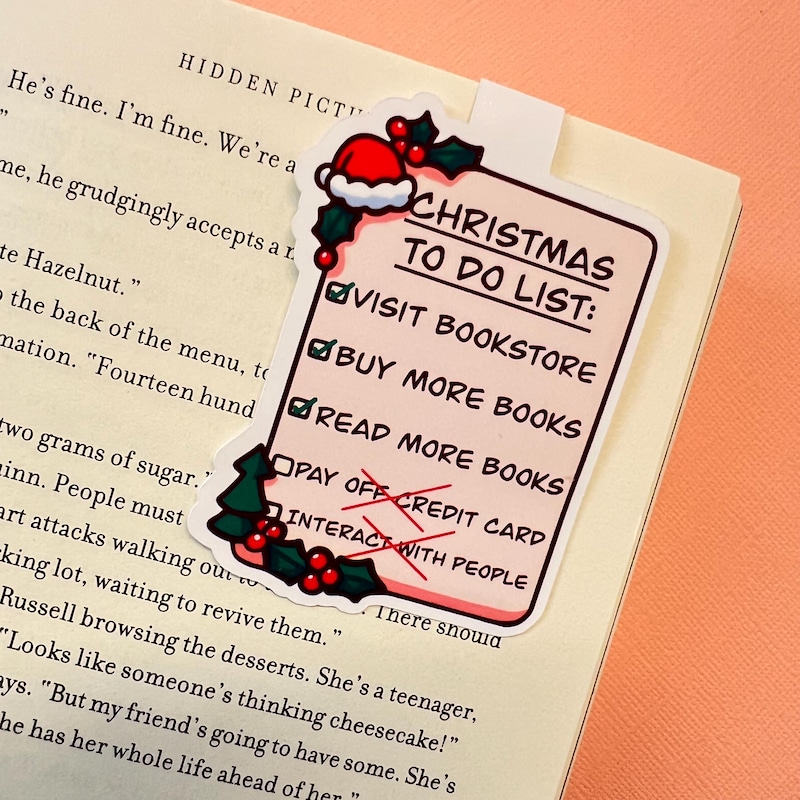 HIDDEN PICTU
He's fine. I'm fine. We're a
"
me, he grudgingly accepts a
te Hazelnut."
the back of the menu, to
mation. "Fourteen hund
two grams of sugar."
uinn. People must
art attacks walking out to
king lot, waiting to revive them." There should
Russell browsing the desserts. She's a teenager,
"Looks like someone's thinking cheesecake!"
ays. "But my friend's going to have some. She's
he has her whole life ahead of her."
CHRISTMAS
TO DO LIST:
VISIT BOOKSTORE
BUY MORE BOOKS
READ MORE BOOKS
PAY OFF CREDIT CARD
INTERACT WITH PEOPLE